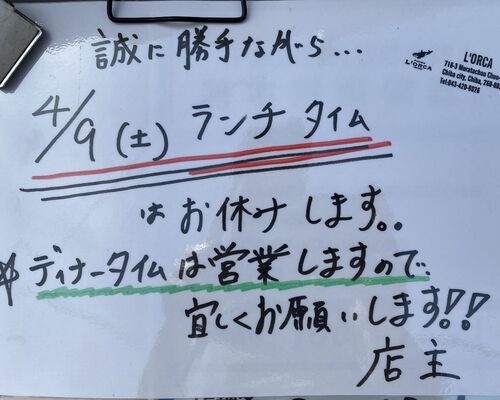 誠に勝手ながら...
L'ORCA
L'ORCA
Chiba city, Chiba, 260-
Tel:043-420-8026
4/9(土) ランチタイム
はお休みします。
※ディナータイムは営業しますので
宜しくお願いします!!
店主